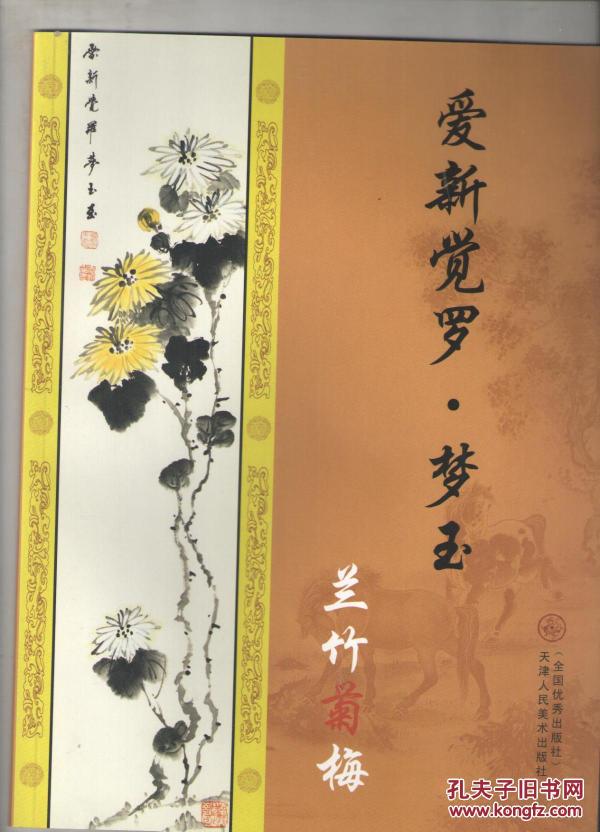 爱新觉罗·梦玉
兰竹菊梅
（全国优秀出版社）
天津人民美术出版社
爱新觉罗梦玉画
孔夫子旧书网
www.kongfz.com